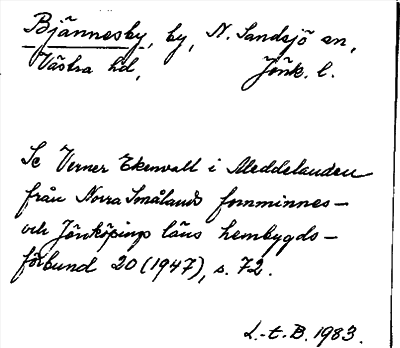 Bjännesby, by, N. Sandsjö sn,
Västra hd, Jönk. l.
Se Verner Ekenvall i Meddelanden
från Norra Smålands fornminnes-
och Jönköpings läns hembygds-
förbund 20 (1947), s. 72.
L.-t. B. 1983.